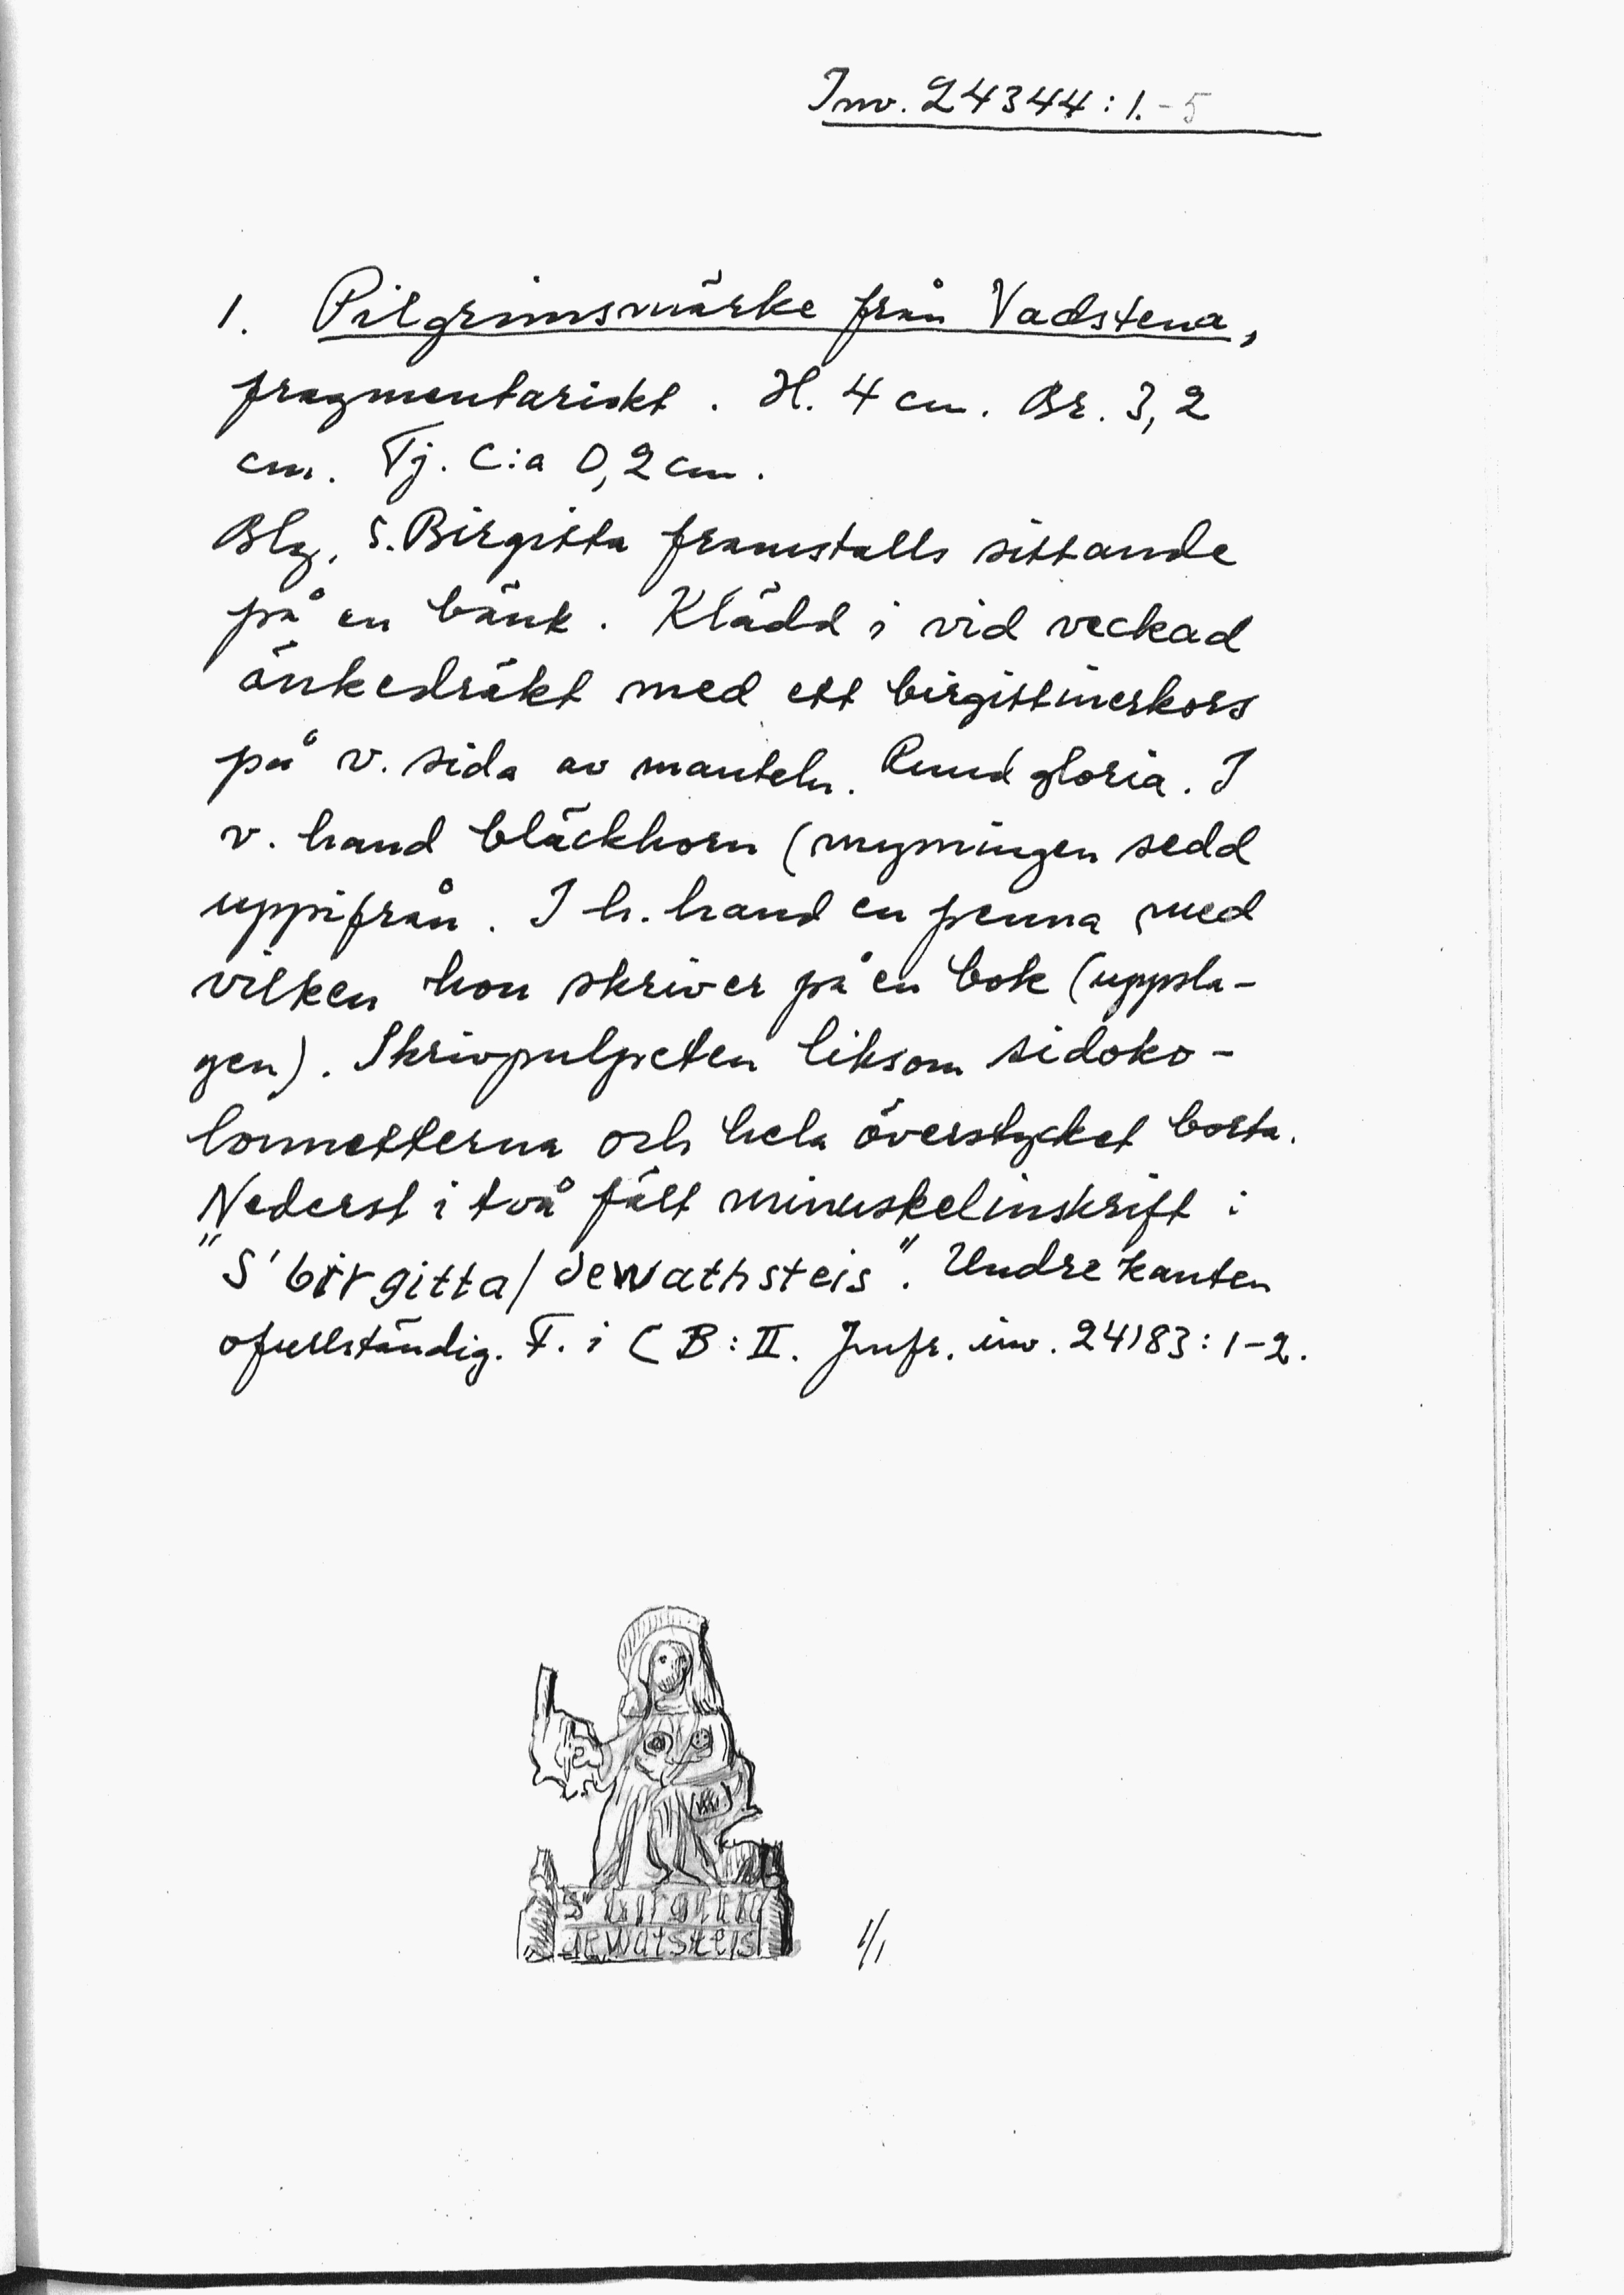 Inv. 24344:1.-5
1. Pilgrimsmärke från Vadstena,
fragmentariskt. H. 4 cm. Br. 3,2
cm. Tj. C:a 0,2 cm.
Blg. S. Birgitta framställs sittande
på en bänk. Klädd i vid veckad
änkedräkt med ett birgittinerkors
på v. sida av manteln. Rund gloria. I
v. hand bläckhorn (mynningen sedd
uppifrån. I h. hand en penna med
vilken hon skriver på en bok (uppsla-
gen). Skrivpulpeten liksom sidoko-
lonnetterna och hela överstycket borta.
Nederst i två fält minuskelinskrift:
"S' birgitta/ dewathsteis". Undre kanten
ofullständig. F. i CB:II. Jmfr. inv. 24183:1-2.
S' birgitta
dewatsteis
1/1